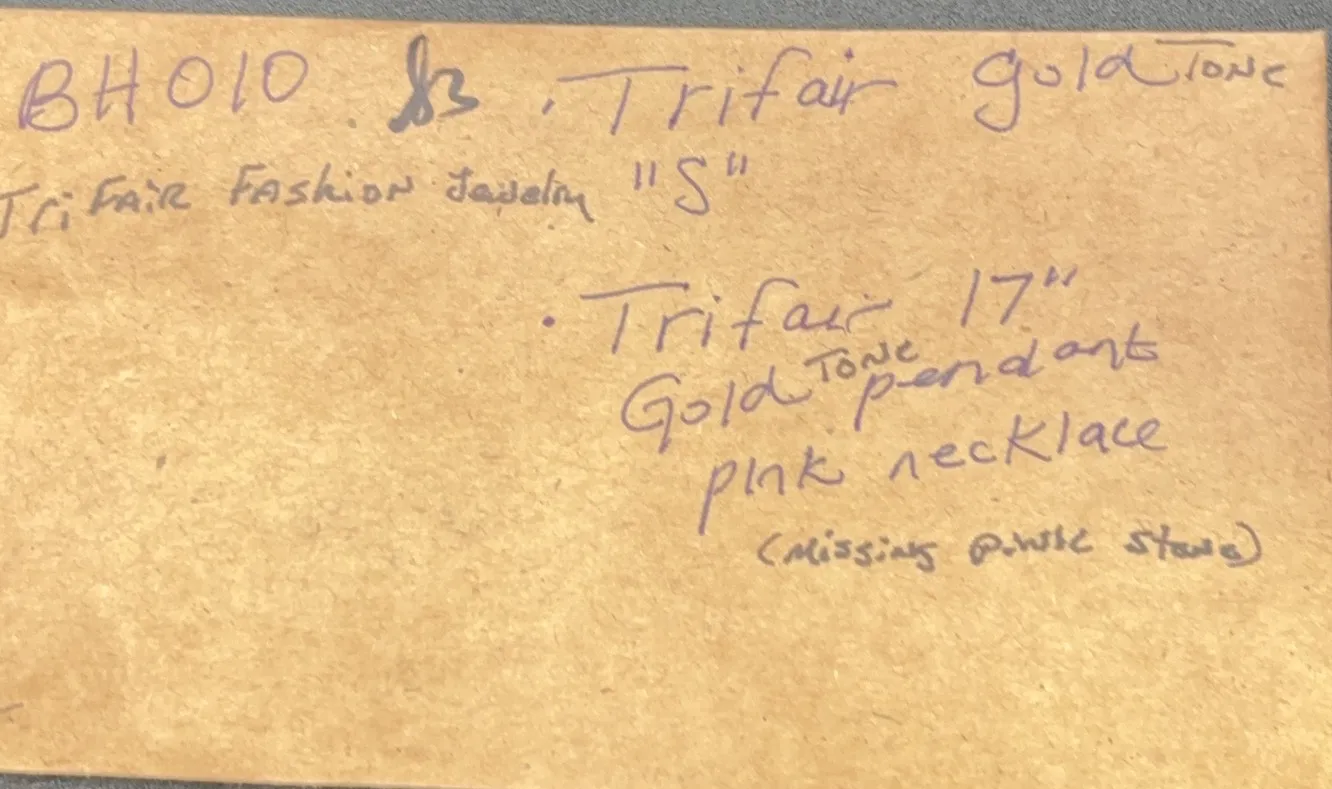 BH010 . Trifair gold TONE
TriFAIR FASHION Jewelry "S"
. Trifair 17"
Gold TONE pendant
pink necklace
(Missing pink stone)